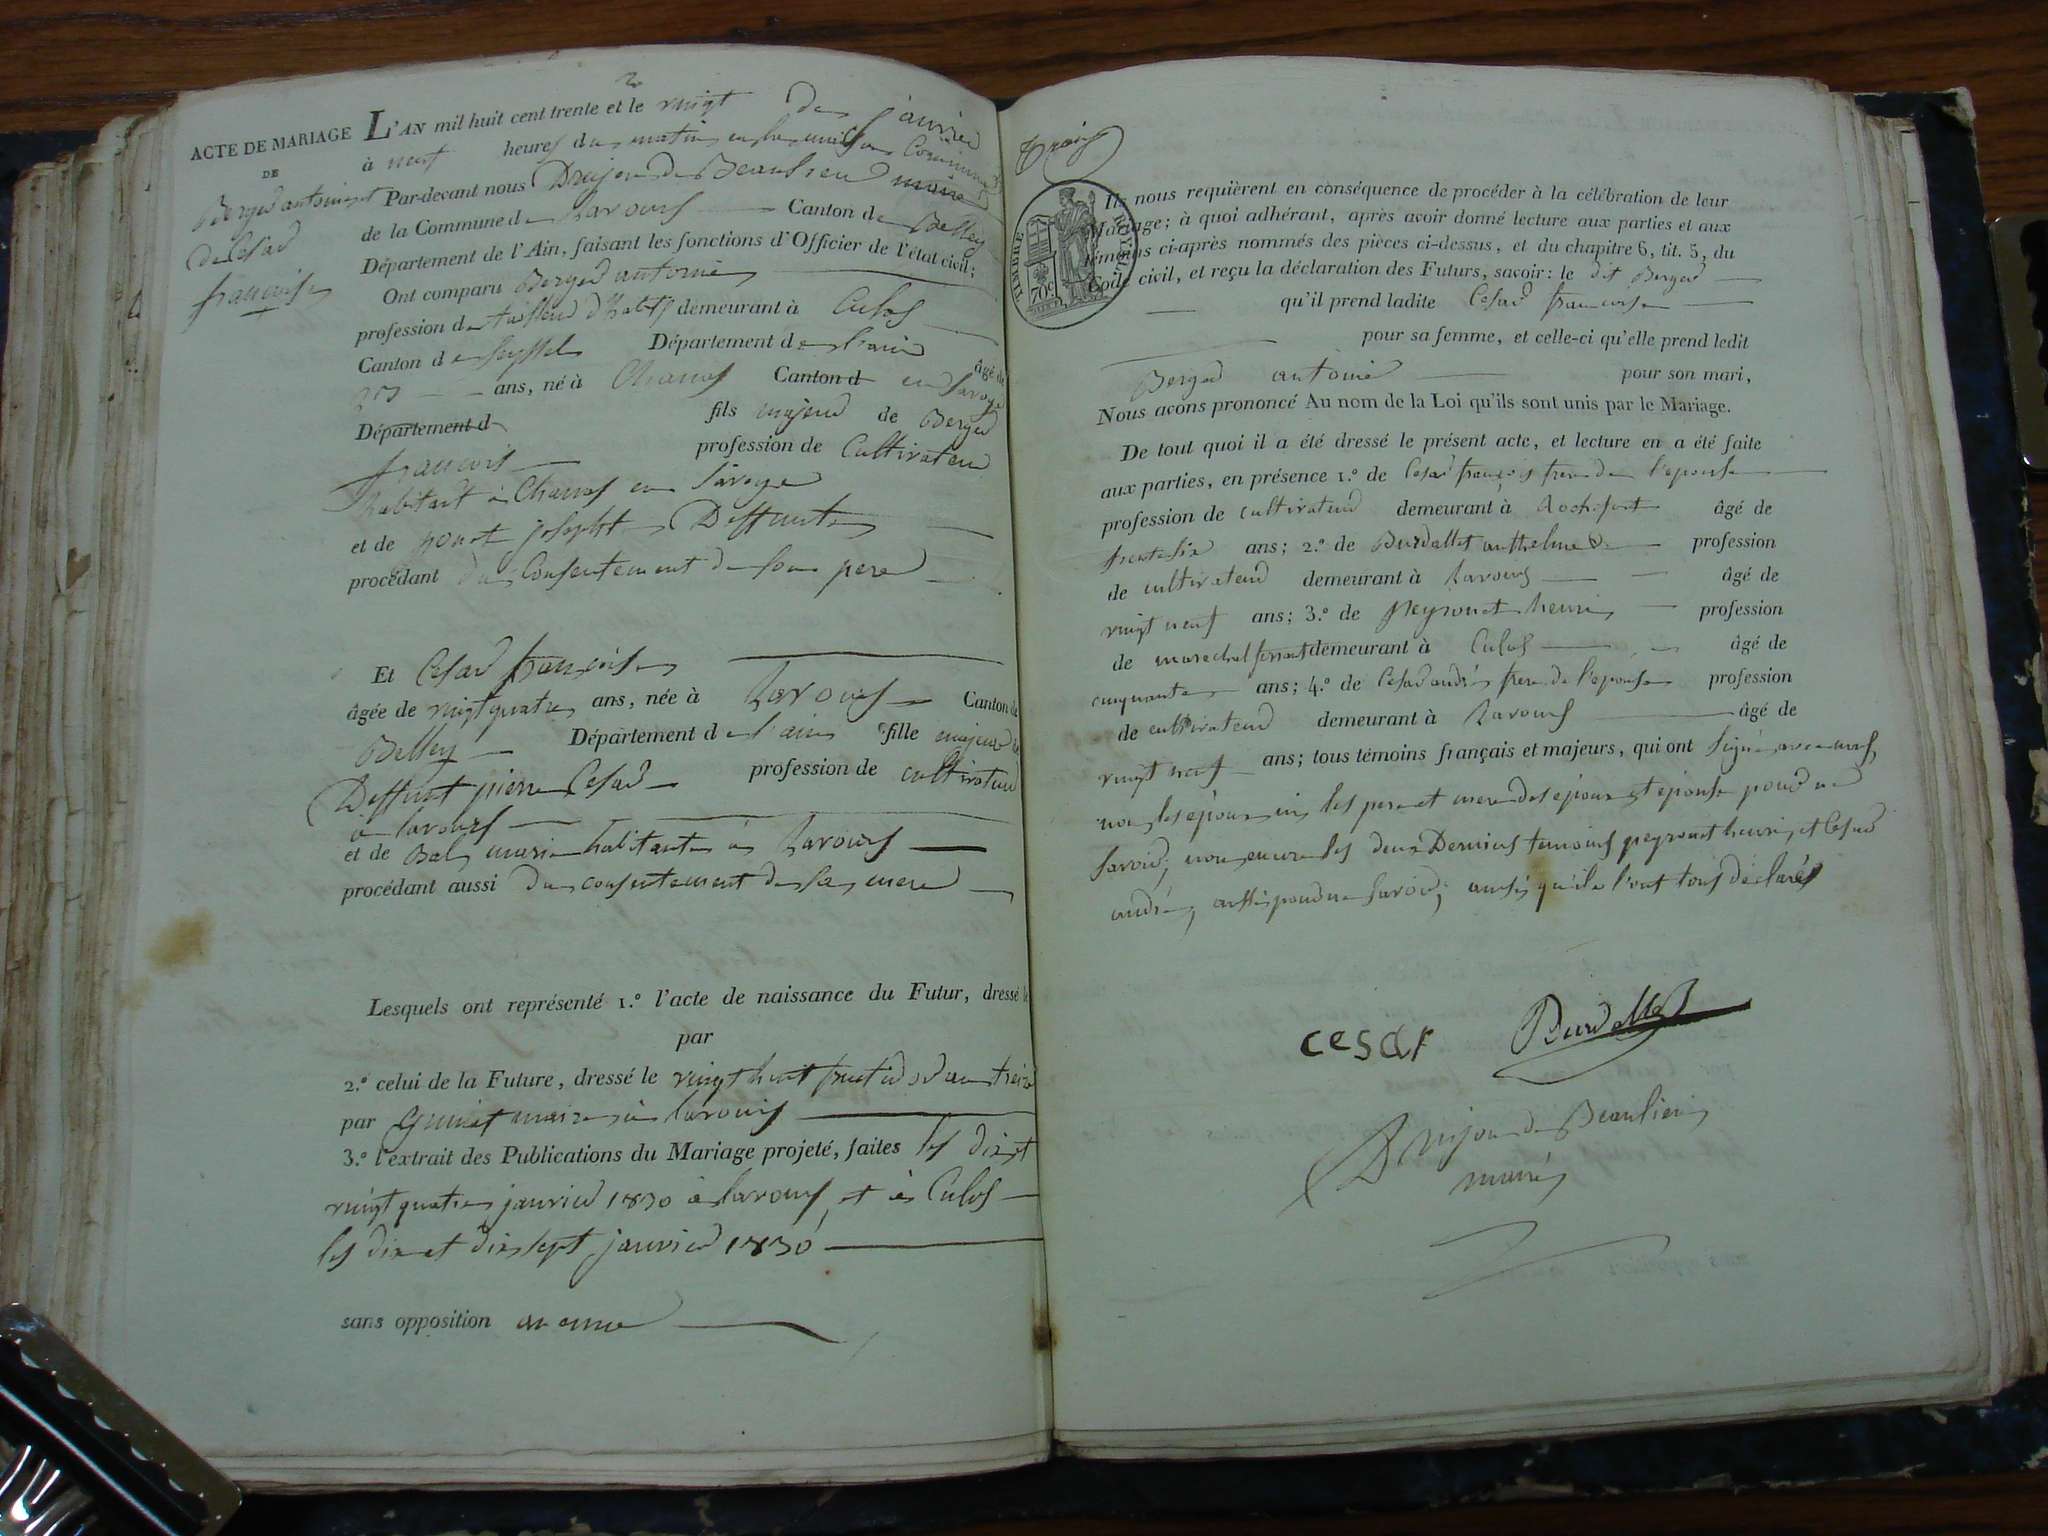 2
ACTE DE MARIAGE
DE
Berger antoine et
de Cesar
françoise
L'AN mil huit cent trente et le vingt de
à neuf heures du matin en la maison Commune
Par-devant nous Drujon de Beaulieu maire
de la Commune de Lavours Canton de Belley
Département de l'Ain, faisant les fonctions d'Officier de l'état civil;
Ont comparu Berger antoine
profession de tailleur d'habits demeurant à Culos
Canton de Seyssel Département de l'ain âgé de
ans, né à Chanas Canton d en Savoye
Département d fils majeur de Berger
francois profession de Cultivateur
habitant à Chanas en Savoye
et de josephte Deffunte
procédant du Consentement de son pere
Et Cesar françoise
âgée de vingt quatre ans, née à Lavours Canton de
Belley Département de l'ain fille majeure de
Deffunt pierre Cesar profession de cultivateur
à lavours
et de Bal marie habitante à Lavours
procédant aussi du consentement de sa mere
Lesquels ont représenté 1.º l'acte de naissance du Futur, dressé le
par
2.º celui de la Future, dressé le vingt huit fructidor an treize
par Guinet maire à lavours
3.º l'extrait des Publications du Mariage projeté, faites les dix et
vingt quatre janvier 1830 à lavours et à Culos
les dix et dix sept janvier 1830
sans opposition avenue
Trois
TIMBRE ROYAL
70 c
Ils nous requièrent en conséquence de procéder à la célébration de leur
Mariage; à quoi adhérant, après avoir donné lecture aux parties et aux
témoins ci-après nommés des pièces ci-dessus, et du chapitre 6, tit. 5, du
Code civil, et reçu la déclaration des Futurs, savoir: le dit Berger
qu'il prend ladite Cesar francoise
pour sa femme, et celle-ci qu'elle prend ledit
Berger antoine pour son mari,
Nous avons prononcé Au nom de la Loi qu'ils sont unis par le Mariage.
De tout quoi il a été dressé le présent acte, et lecture en a été faite
aux parties, en présence 1.º de Cesar françois frere de l'epouse
profession de cultivateur demeurant à Rochefort âgé de
trente six ans; 2.º de Burdallet anthelme profession
de cultivateur demeurant à Lavours âgé de
vingt neuf ans; 3.º de peyronet henri profession
de marechal ferrant demeurant à Culos âgé de
cinquante ans; 4.º de Cesar andré frere de l'epouse profession
de cultivateur demeurant à Lavours âgé de
vingt neuf ans; tous témoins français et majeurs, qui ont signé avec nous,
non les époux ni les pere et mere des époux et épouse pour ne
savoir, non encore les deux Derniers temoins peyronet henri, et Cesar
andré, aussi pour ne savoir; ainsi qu'ils l'ont tous déclaré
cesar Burdallet
Drujon de Beaulieu
maire